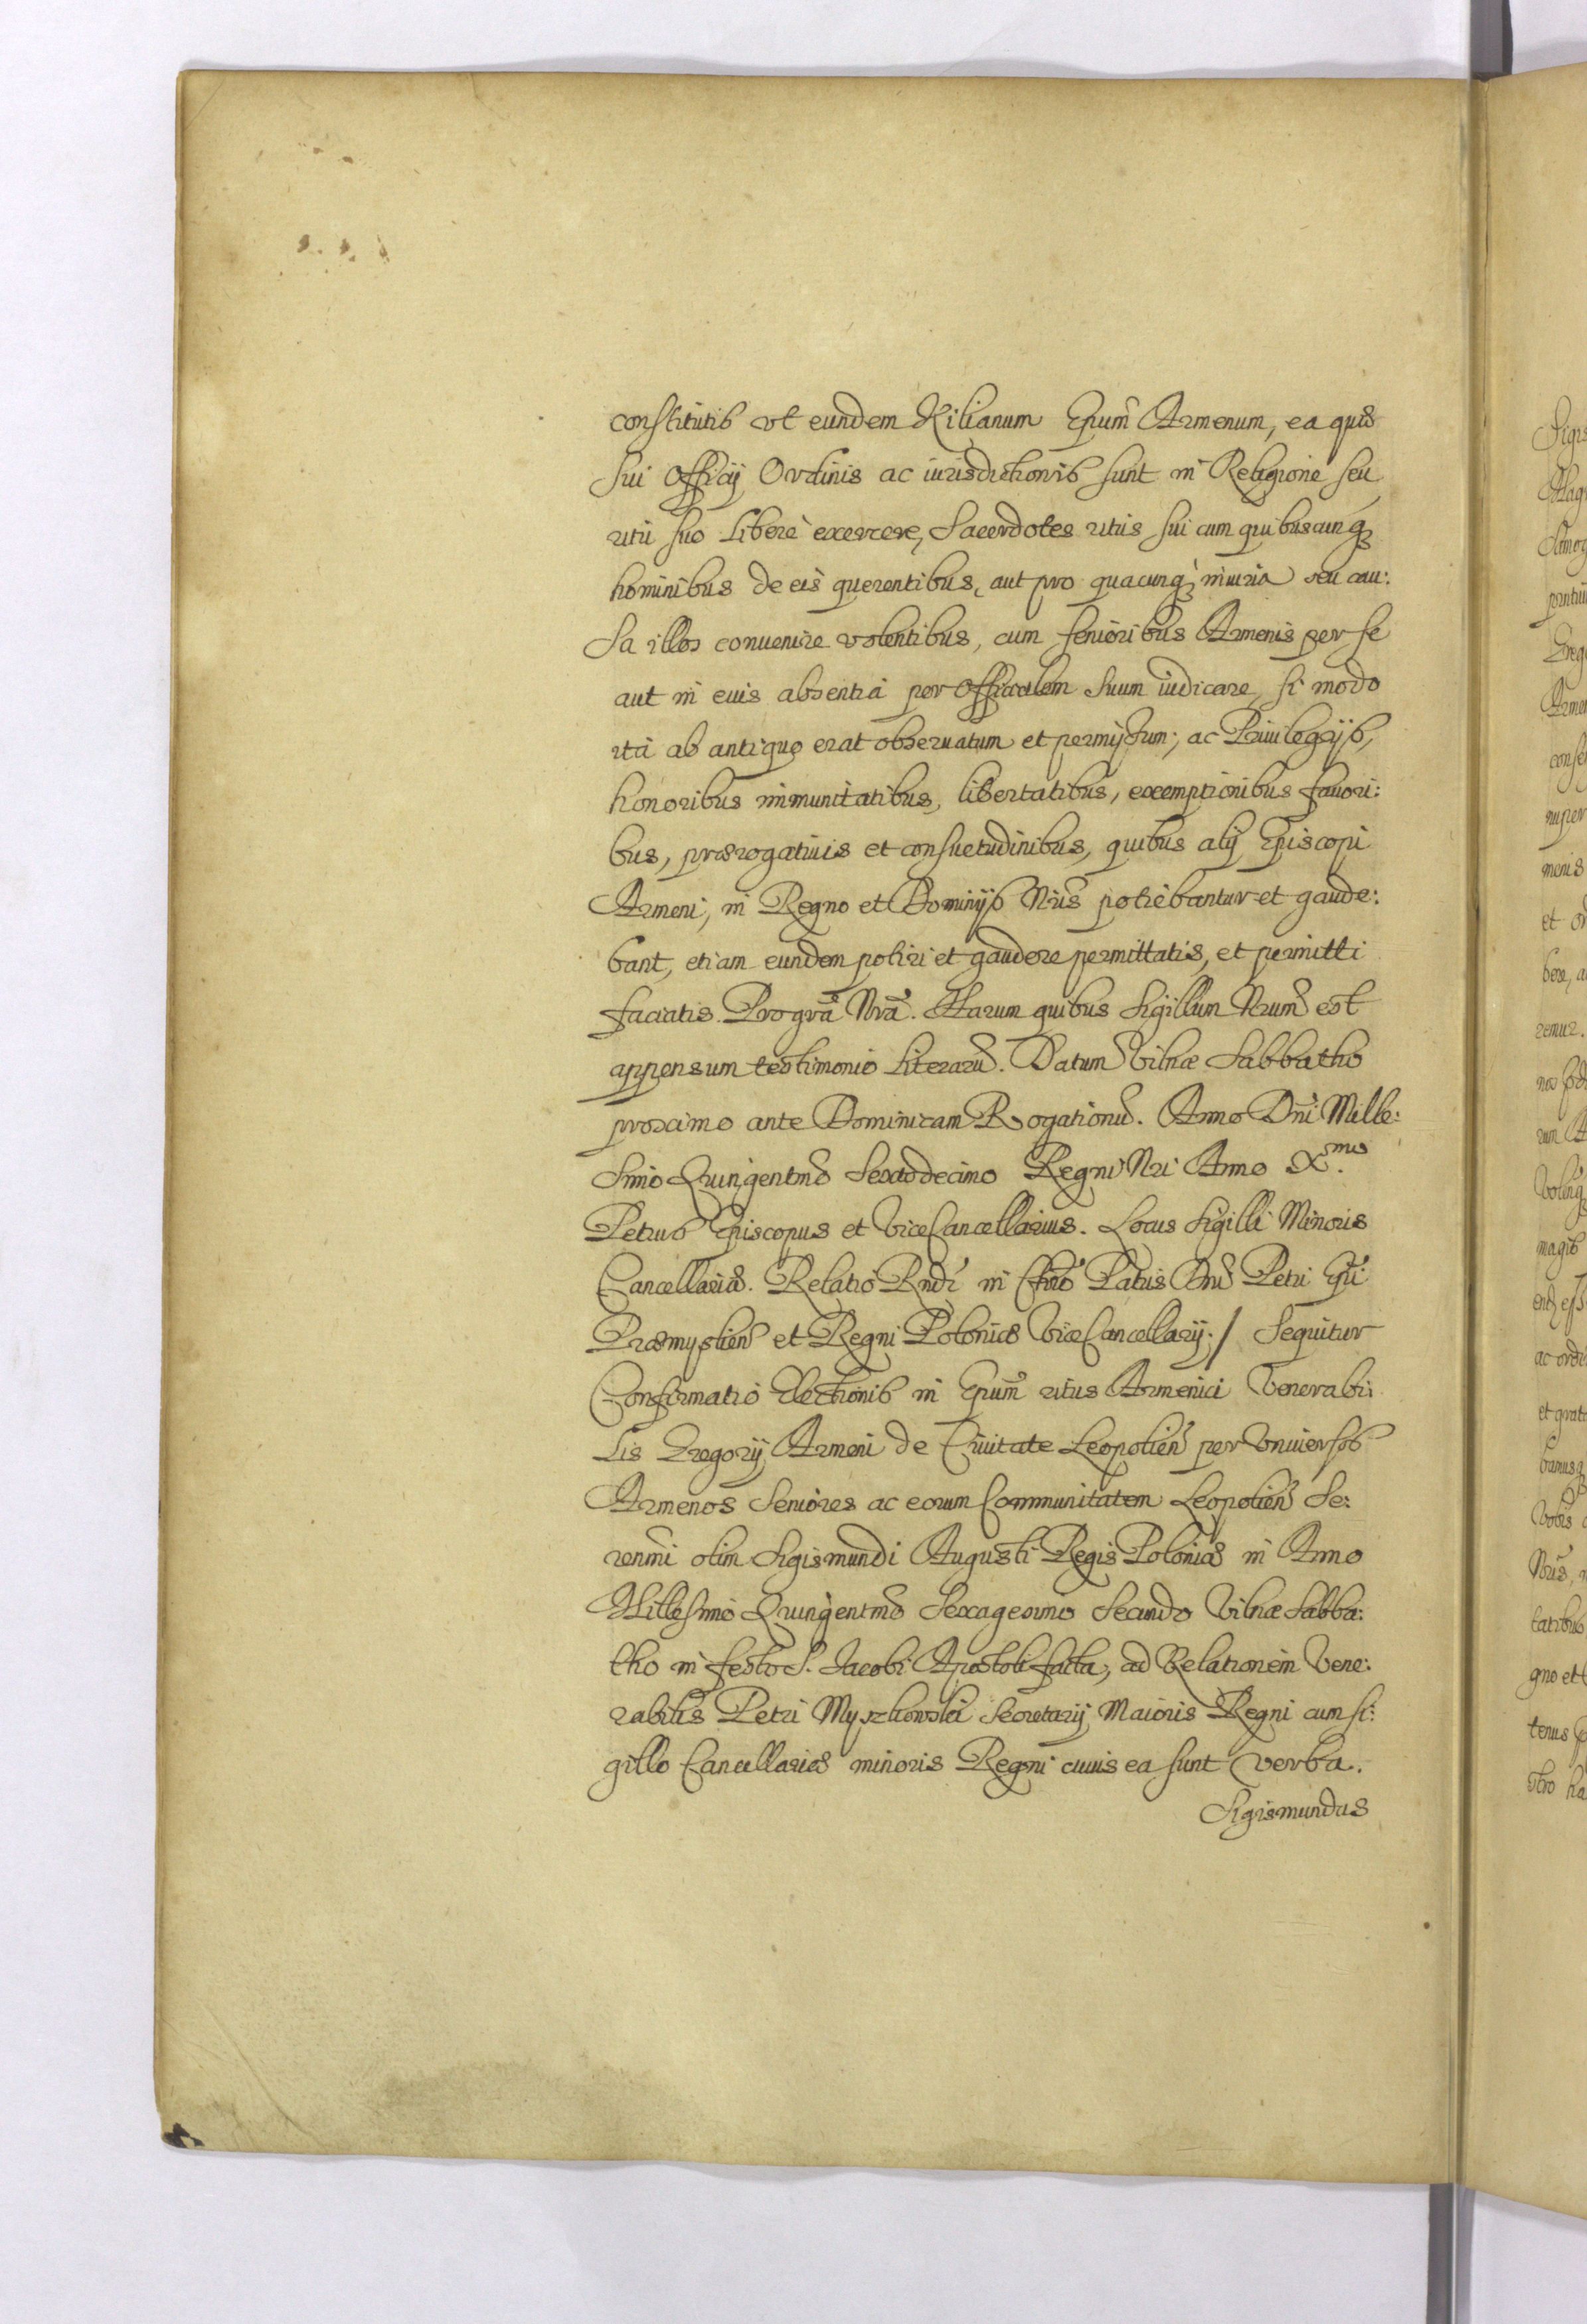 constitutis vt eundem Kilianum Epum Armenum, ea quæ
sui Officij Ordinis ac iurisdictionis sunt in Religione seu
ritu suo Liberè exercere, Sacerdotes ritus sui cum quibuscunq
hominibus de eis querentibus, aut pro quacunq iniuria seu cau:
sa illos conuenire volentibus, cum senioribus Armenis per se
aut in euis absentia per Officialem suum iudicare, si modo
ita ab antiquo erat obseruatum et permissum; ac Priuilegijs,
honoribus immunitatibus, libertatibus, exemptionibus fauori:
bus, prærogatiuis et consuetudinibus, quibus alij Episcopi
Armeni, in Regno et Dominijs Nris potiebantur et gaude:
bant, etiam eundem potiri et gaudere permittatis, et permitti
faciatis. Pro gra Nra. Harum quibus Sigillum Nrum est
appensum testimonio Literaru. Datum Vilnæ Sabbatho
proximo ante Dominicam Rogationu. Anno Dni Mille:
simo Quingentmo Sextodecimo Regni Nri Anno Xmo.
Petrus Episcopus et ViceCancellarius. Locus Sigilli Minoris
Cancellariæ. Relatio Rndi in Chro Patris Dni Petri Epi
Præmyslien et Regni Poloniæ ViceCancellarij. / Sequitur
Confirmatio Electionis in Epum ritus Armenici Venerabi:
lis Gregorij Armeni de Ciuitate Leopolien per Vniuersos
Armenos Seniores ac eorum Communitatem Leopolien Se:
renmi olim Sigismundi Augusti Regis Poloniæ in Anno
Millesimo Quingentmo Sexagesimo Secundo Vilnæ Sabba:
tho in festo S. Jacobi Apostoli facta, ad Relationem Vene:
rabilis Petri Myszkowski Secretarij Maioris Regni cum si:
gillo Cancellariæ minoris Regni cuius ea sunt verba.
Sigismundus